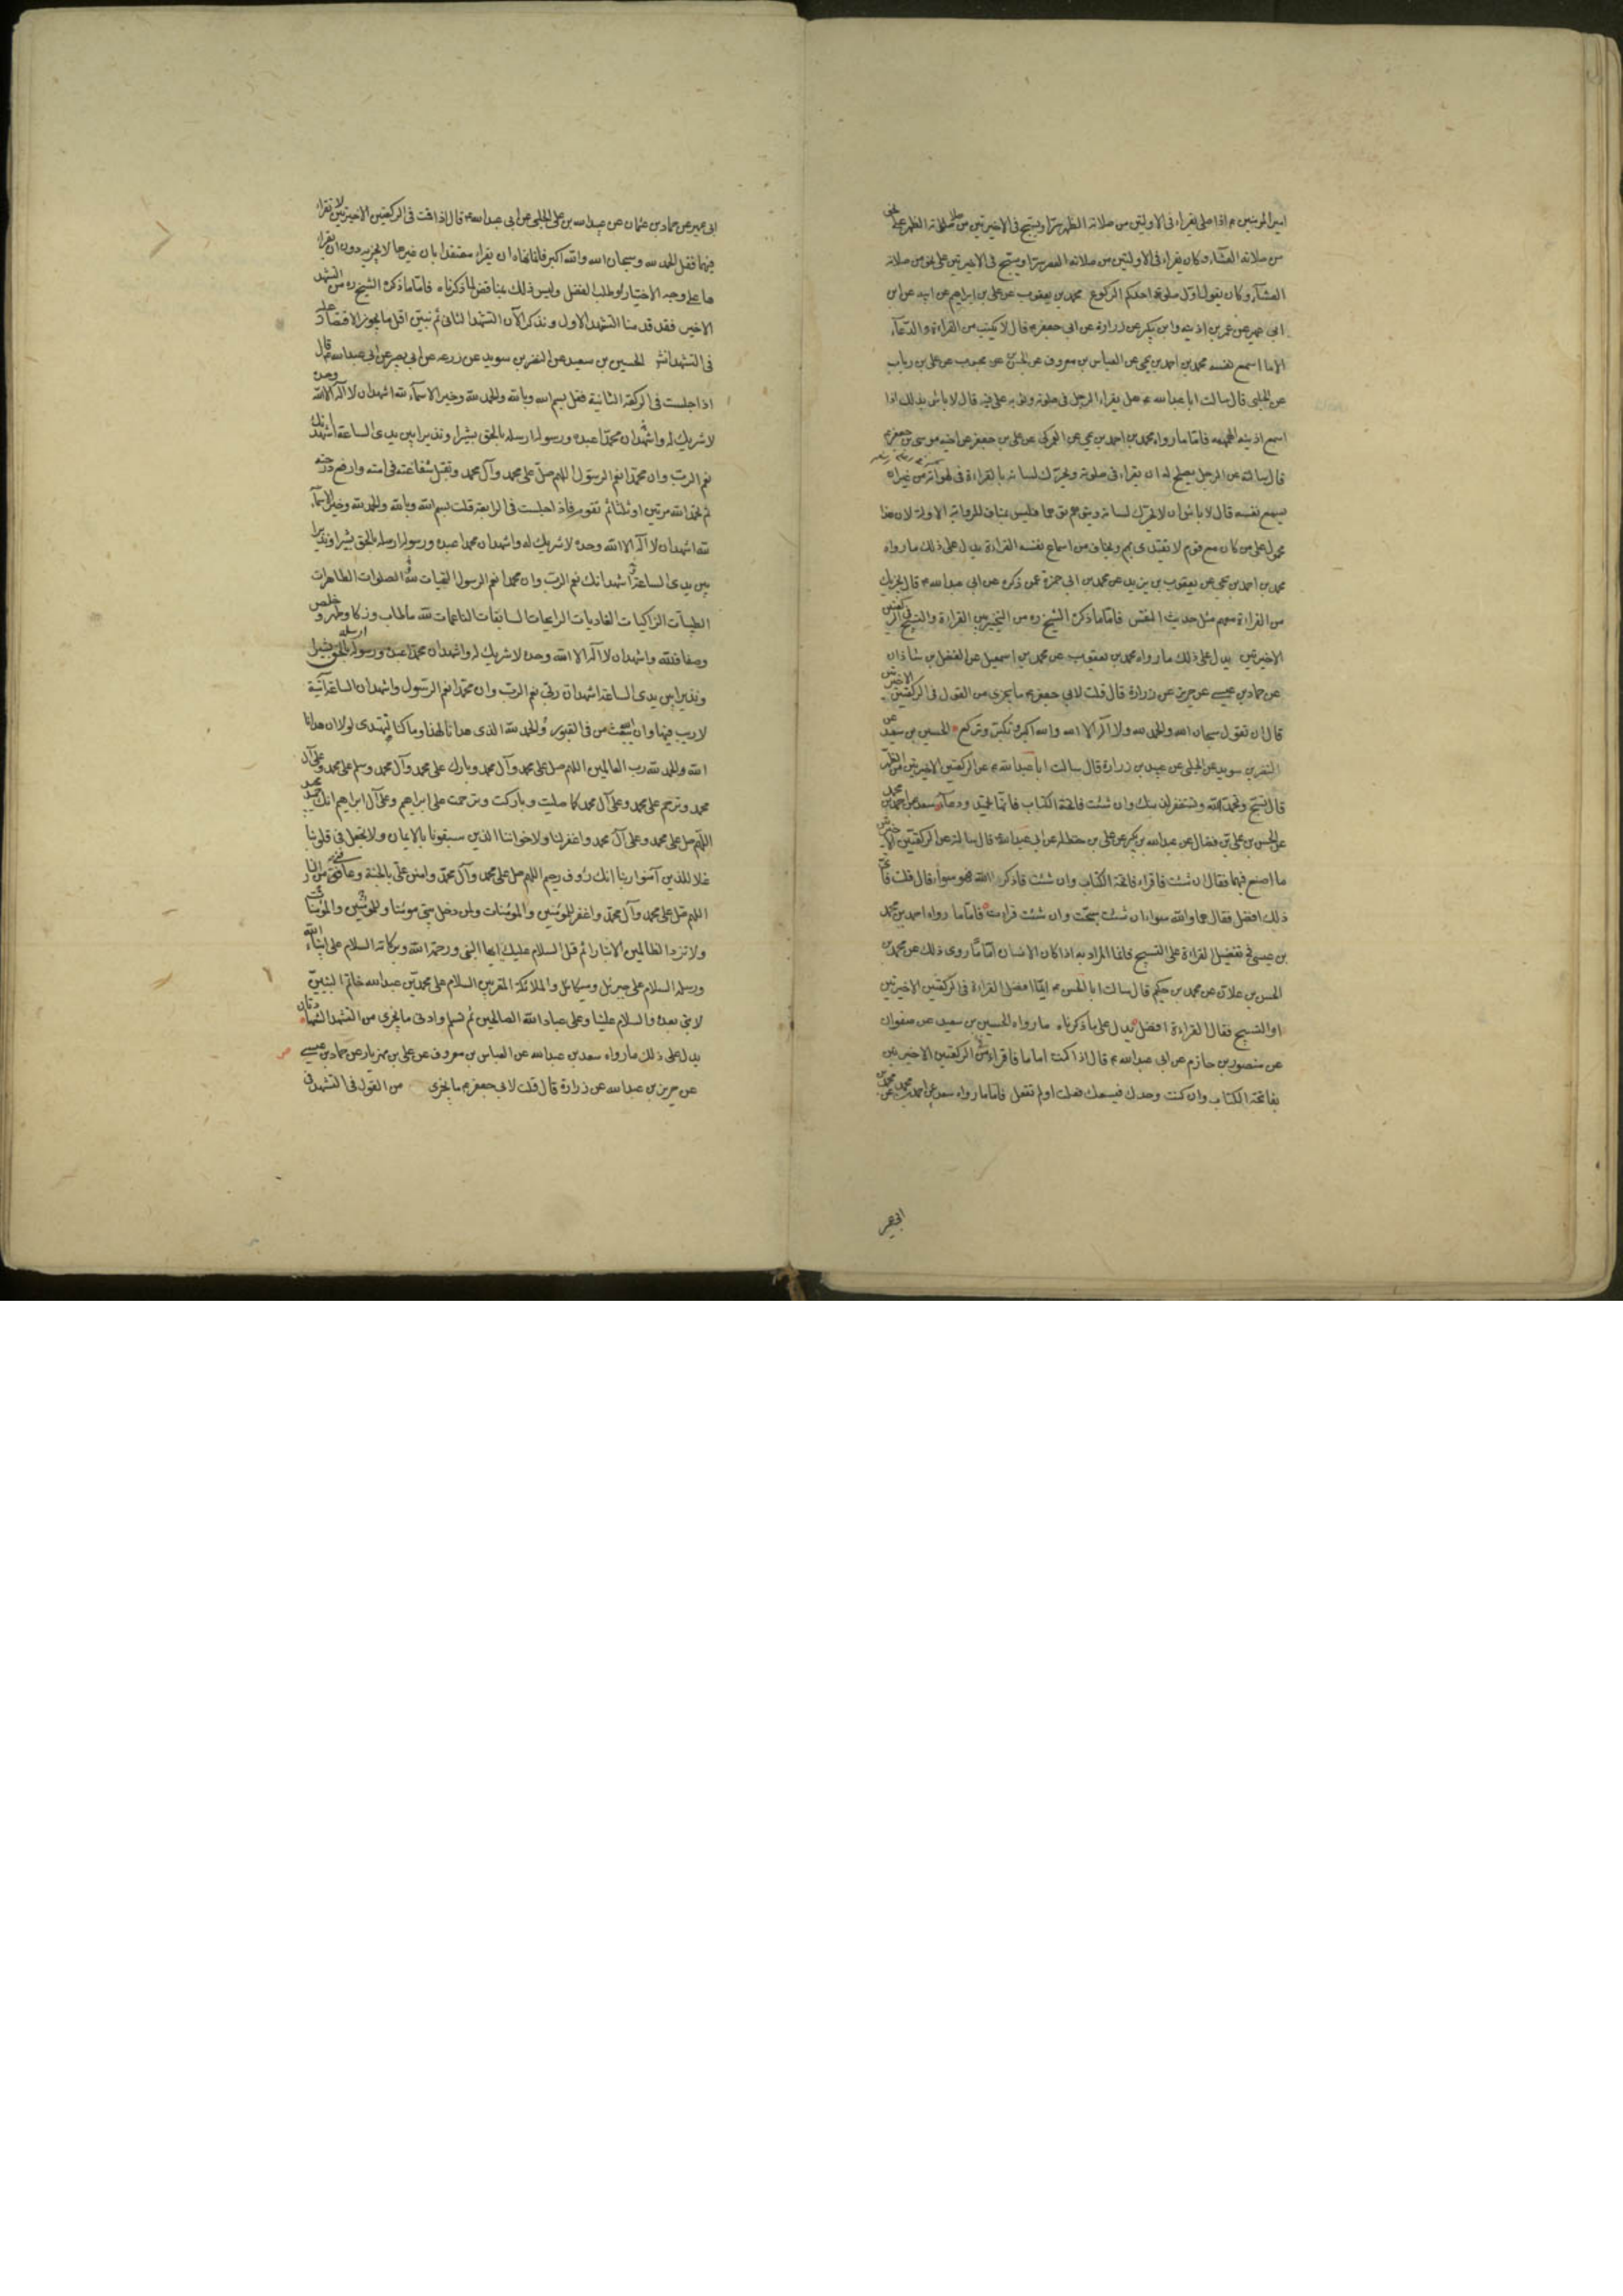 امير المؤمنين ع اذا صلى يقراء فى الاولتين من صلاته الظهر سرا ويسبح فى الاخيرتين من صلاته الظهر على نحو
من صلاته العشاء وكان يقراء فى الاولتين من صلاته العصر سرا ويسبح فى الاخيرتين على نحو من صلاته
العشاء وكان يقول اول صلوة احدكم الركوع محمد بن يعقوب عن على بن ابراهيم عن ابيه عن ابن
ابى عمير عن عمر بن اذينه وابن بكير عن زرارة عن ابى جعفر ع قال لا يكتب من القراءة والدعاء
الا ما اسمع نفسه محمد بن احمد بن يحيى عن العباس بن معروف عن الحسن بن محبوب عن على بن رياب
عن الحلبى قال سالت ابا عبد الله ع هل يقراء الرجل فى صلوته وثوبه على فيه قال لا باس بذلك اذا
اسمع اذنيه الهمهمه فاما ما رواه محمد بن احمد بن يحيى عن العمركى عن على بن جعفر عن اخيه موسى بن جعفر ع
قال سالته عن الرجل يصلح له ان يقراء فى صلوته ويحرك لسانه بالقراءة فى لهواته من غير ان
يسمع نفسه قال لا باس ان لا يحرك لسانه يتوهم توهما فليس بمناف للرواية الاولة لان هذا
محمول على من كان مع قوم لا يقتدى بهم ويخاف من اسماع نفسه القراءة يدل على ذلك ما رواه
محمد بن احمد بن يحيى عن يعقوب بن يزيد عن محمد بن ابى حمزة عمن ذكره عن ابى عبد الله ع قال يجزيك
من القراءة معهم مثل حديث النفس فاما ما ذكره الشيخ ره من التخيير بين القراءة والتسبيح فى الركعتين
الاخيرتين يدل على ذلك ما رواه محمد بن يعقوب عن محمد بن اسمعيل عن الفضل بن شاذان
عن حماد بن عيسى عن حريز عن زرارة قال قلت لابى جعفر ع ما يجزى من القول فى الركعتين الاخيرتين
قال ان تقول سبحان الله والحمد لله ولا اله الا الله والله اكبر وتكبر وتركع الحسين بن سعيد عن
النضر بن سويد عن الحلبى عن عبيد بن زرارة قال سالت ابا عبد الله ع عن الركعتين الاخيرتين من الظهر
قال تسبح وتحمد الله وتستغفر لذنبك وان شئت فاتحة الكتاب فانها تحميد ودعاء سعد عن احمد بن محمد
عن الحسن بن على بن فضال عن عبد الله بن بكير عن على بن حنظله عن ابى عبد الله ع قال سالته عن الركعتين الاخيرتين
ما اصنع فيهما فقال ان شئت فاقراء فاتحة الكتاب وان شئت فاذكر الله فهو سواء قال قلت فاى
ذلك افضل فقال هما والله سواء ان شئت سبحت وان شئت قرات فاما ما رواه احمد بن محمد
بن عيسى فى تفضيل القراءة على التسبيح فانما المراد به اذا كان الانسان اماما روى ذلك عن محمد بن
الحسن بن علان عن محمد بن حكيم قال سالت ابا الحسن ع ايما افضل القراءة فى الركعتين الاخيرتين
او التسبيح فقال القراءة افضل يدل على ما ذكرناه ما رواه الحسين بن سعيد عن صفوان
عن منصور بن حازم عن ابى عبد الله ع قال اذا كنت اماما فاقراء فى الركعتين الاخيرتين
بفاتحة الكتاب وان كنت وحدك فيسعك فعلت او لم تفعل فاما ما رواه سعد عن احمد بن محمد عن محمد بن
ابى عمير
ابى عمير عن حماد بن عثمان عن عبيد الله بن على الحلبى عن ابى عبد الله ع قال اذا قمت فى الركعتين الاخيرتين لا تقراء
فيهما فقل الحمد لله وسبحان الله والله اكبر فانما نهاه ان يقراء معتقدا بان غيرها لا يجزيه دون ان يقراء
ها على وجه الاختيار لو طلب الفضل وليس ذلك بمناقض لما ذكرناه فاما ما ذكره الشيخ ره من التشهد
الاخير فقد قدمنا التشهد الاول ونذكر الآن التشهد الثانى ثم نبين اقل ما يجوز الاقتصار عليه
فى التشهد انش الحسين بن سعيد عن النضر بن سويد عن زرعه عن ابى بصير عن ابى عبد الله ع قال
اذا جلست فى الركعة الثانية فقل بسم الله وبالله والحمد لله وخير الاسماء لله اشهد ان لا اله الا الله وحده
لا شريك له واشهد ان محمدا عبده ورسوله ارسله بالحق بشيرا ونذيرا بين يدى الساعة اشهد انك
نعم الرب وان محمدا نعم الرسول اللهم صل على محمد وآل محمد وتقبل شفاعته فى امته وارفع درجته
ثم تحمد الله مرتين او ثلثا ثم تقوم فاذا جلست فى الرابعة قلت بسم الله وبالله والحمد لله وخير الاسماء
لله اشهد ان لا اله الا الله وحده لا شريك له واشهد ان محمدا عبده ورسوله ارسله بالحق بشيرا ونذيرا
بين يدى الساعة اشهد انك نعم الرب وان محمدا نعم الرسول التحيات لله الصلوات الطاهرات
الطيبات الزاكيات الغاديات الرايحات السابغات الناعمات لله ما طاب وزكا وطهر وخلص
وصفا فلله واشهد ان لا اله الا الله وحده لا شريك له واشهد ان محمدا عبده ورسوله ارسله بالحق بشيرا
ونذيرا بين يدى الساعة اشهد ان ربى نعم الرب وان محمدا نعم الرسول واشهد ان الساعة آتية
لا ريب فيها وان الله يبعث من فى القبور والحمد لله الذى هدانا لهذا وما كنا لنهتدى لولا ان هدانا
الله والحمد لله رب العالمين اللهم صل على محمد وآل محمد وبارك على محمد وآل محمد وسلم على محمد وعلى آل
محمد وترحم على محمد وعلى آل محمد كما صليت وباركت وترحمت على ابراهيم وعلى آل ابراهيم انك حميد مجيد
اللهم صل على محمد وعلى آل محمد واغفر لنا ولاخواننا الذين سبقونا بالايمان ولا تجعل فى قلوبنا
غلا للذين آمنوا ربنا انك رؤف رحيم اللهم صل على محمد وآل محمد وامنن على بالجنة وعافنى من النار
اللهم صل على محمد وآل محمد واغفر للمؤمنين والمؤمنات ولمن دخل بيتى مؤمنا وللمؤمنين والمؤمنات
ولا تزد الظالمين الا تبارا ثم قل السلام عليك ايها النبى ورحمة الله وبركاته السلام على انبياء الله
ورسله السلام على جبرئيل وميكائيل والملائكة المقربين السلام على محمد بن عبد الله خاتم النبيين
لا نبى بعده والسلام علينا وعلى عباد الله الصالحين ثم تسلم وادنى ما يجزى من التشهد الشهادتان
يدل على ذلك ما رواه سعد بن عبد الله عن العباس بن معروف عن على بن مهزيار عن حماد بن عيسى
عن حريز بن عبد الله عن زرارة قال قلت لابى جعفر ع ما يجزى من القول فى التشهد فى